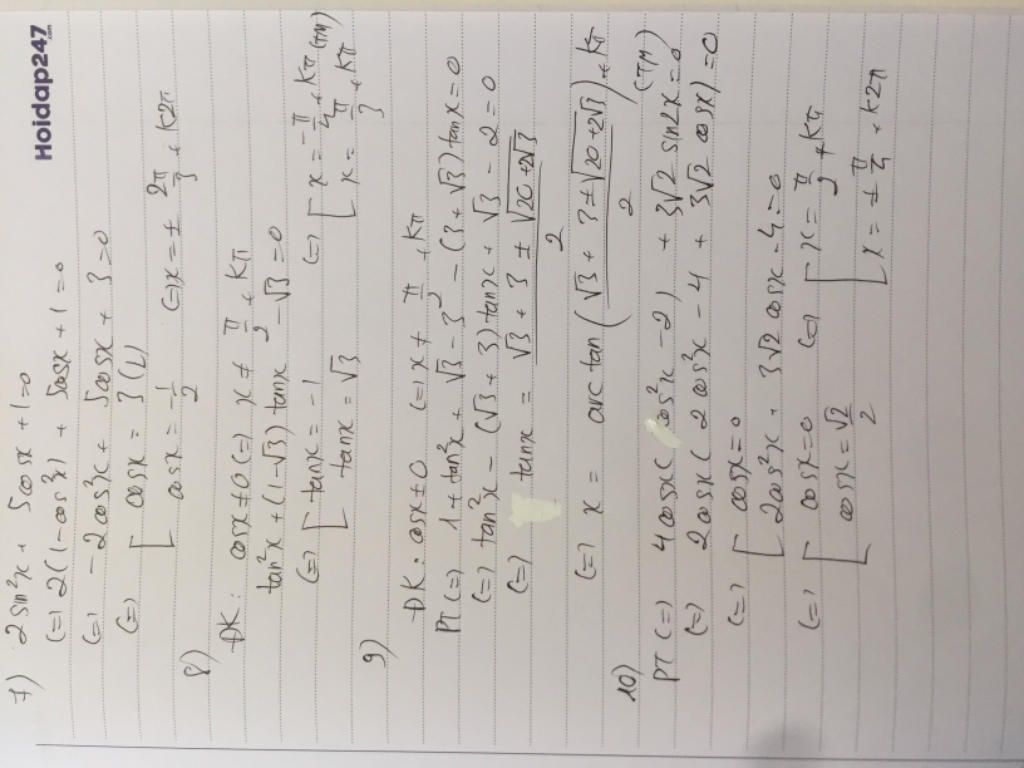 Hoidap247.com
7) 2sin²x + 5cosx + 1 = 0
(=) 2(1-cos²x) + 5cosx + 1 = 0
(=) -2cos²x + 5cosx + 3 = 0
(=) [ cosx = 3 (L)
cosx = -1/2 (=) x = ± 2π/3 + k2π
8)
ĐK: cosx ≠ 0 (=) x ≠ π/2 + kπ
tan²x + (1-√3) tanx - √3 = 0
(=) [ tanx = -1 (=) [ x = -π/4 + kπ (TM)
tanx = √3 x = π/3 + kπ
9)
ĐK: cosx ≠ 0 (=) x ≠ π/2 + kπ
PT (=) 1 + tan²x + √3 - 3 - (3 + √3) tanx = 0
(=) tan²x - (√3 + 3) tanx + √3 - 2 = 0
(=) tanx = (√3 + 3 ± √20+2√3)/2
(=) x = arctan ( (√3 + 3 ± √20+2√3)/2 ) + kπ (TM)
10)
PT (=) 4cosx (cos²x - 2) + 3√2 sin2x = 0
(=) 2cosx ( 2cos²x - 4 + 3√2 cosx) = 0
(=) [ cosx = 0
2cos²x + 3√2 cosx - 4 = 0
(=) [ cosx = 0 (=) [ x = π/2 + kπ
cosx = √2/2 x = ± π/4 + k2π